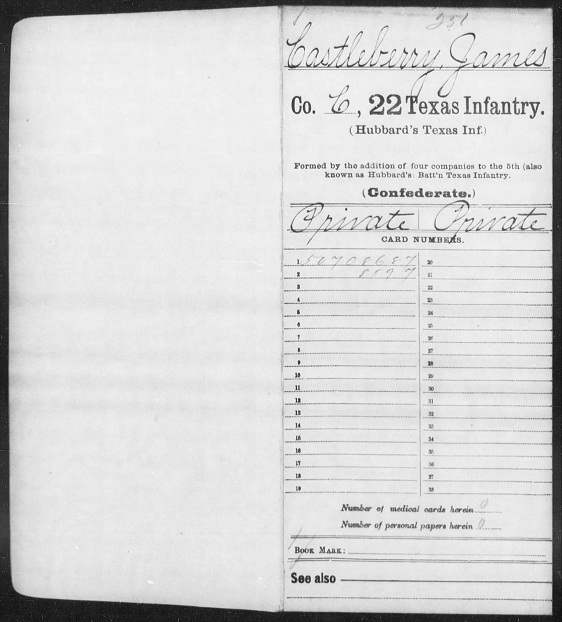 251
Castleberry, James
Co. C, 22 Texas Infantry.
(Hubbard's Texas Inf.)
Formed by the addition of four companies to the 5th (also
known as Hubbard's) Batt'n Texas Infantry.
(Confederate.)
Private | Private
CARD NUMBERS.
1 50708687 20
2 21
3 22
4 23
5 24
6 25
7 26
8 27
9 28
10 29
11 30
12 31
13 32
14 33
15 34
16 35
17 36
18 37
19 38
Number of medical cards herein 0
Number of personal papers herein 0
BOOK MARK:
See also